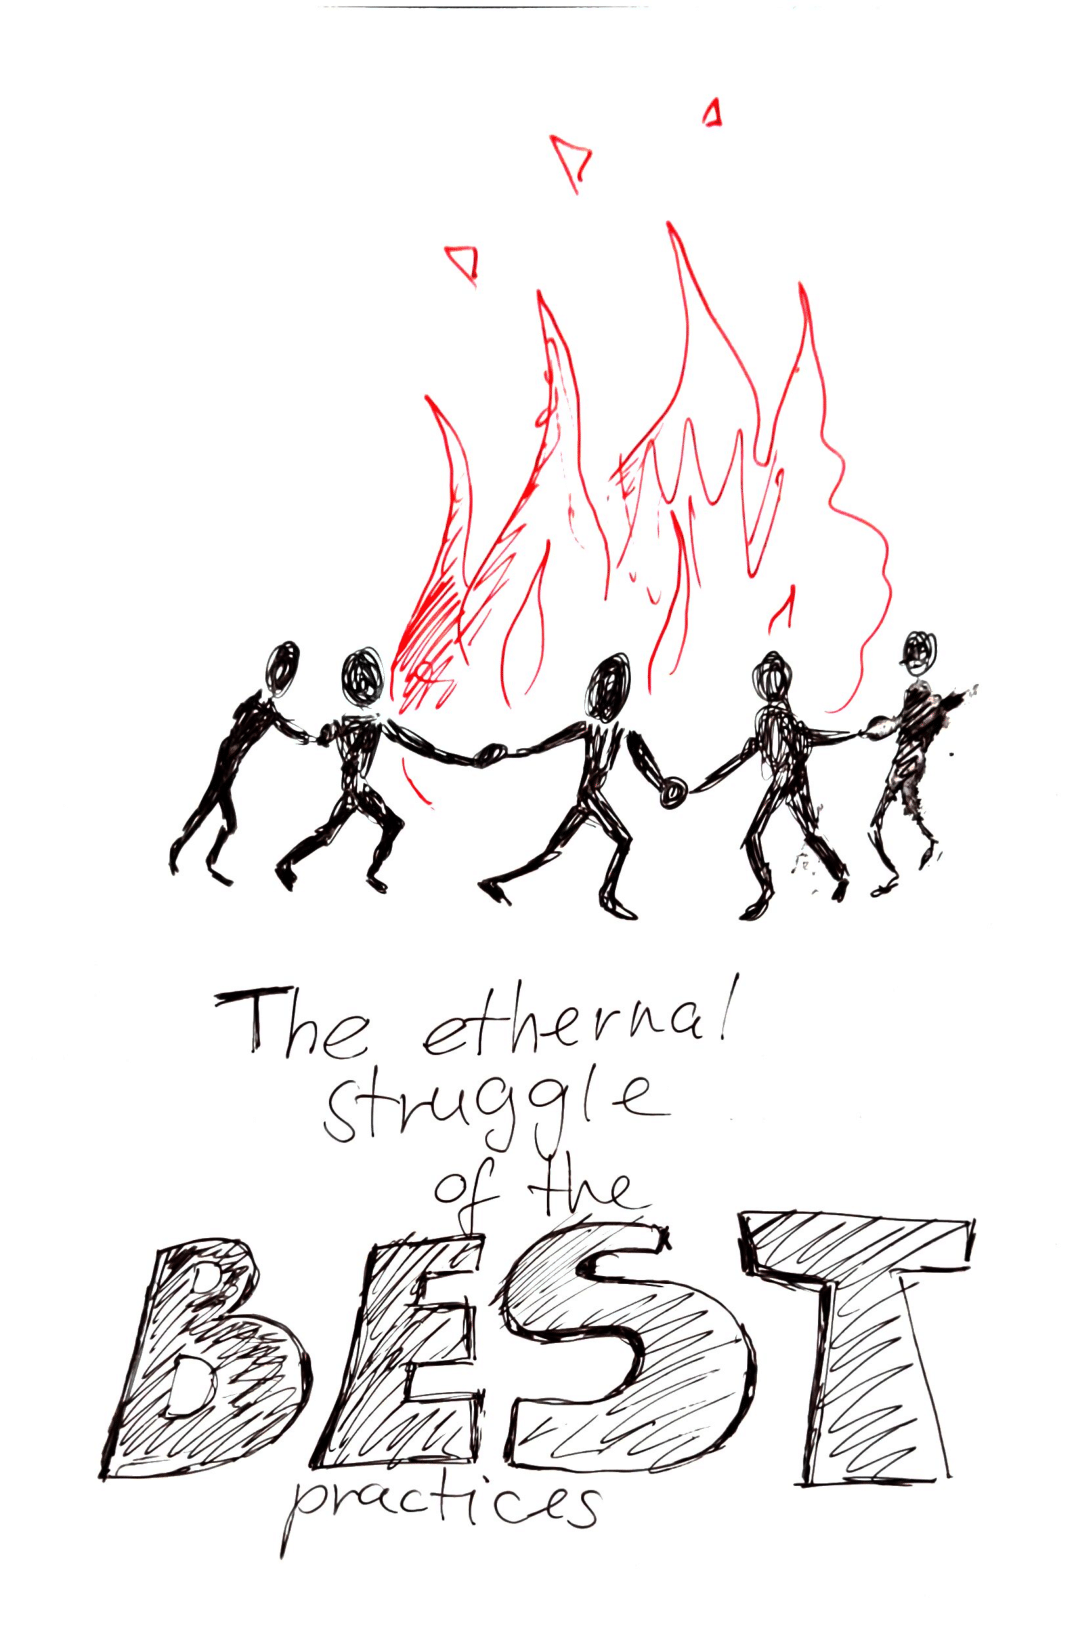 The ethernal
struggle
of the
BEST
practices